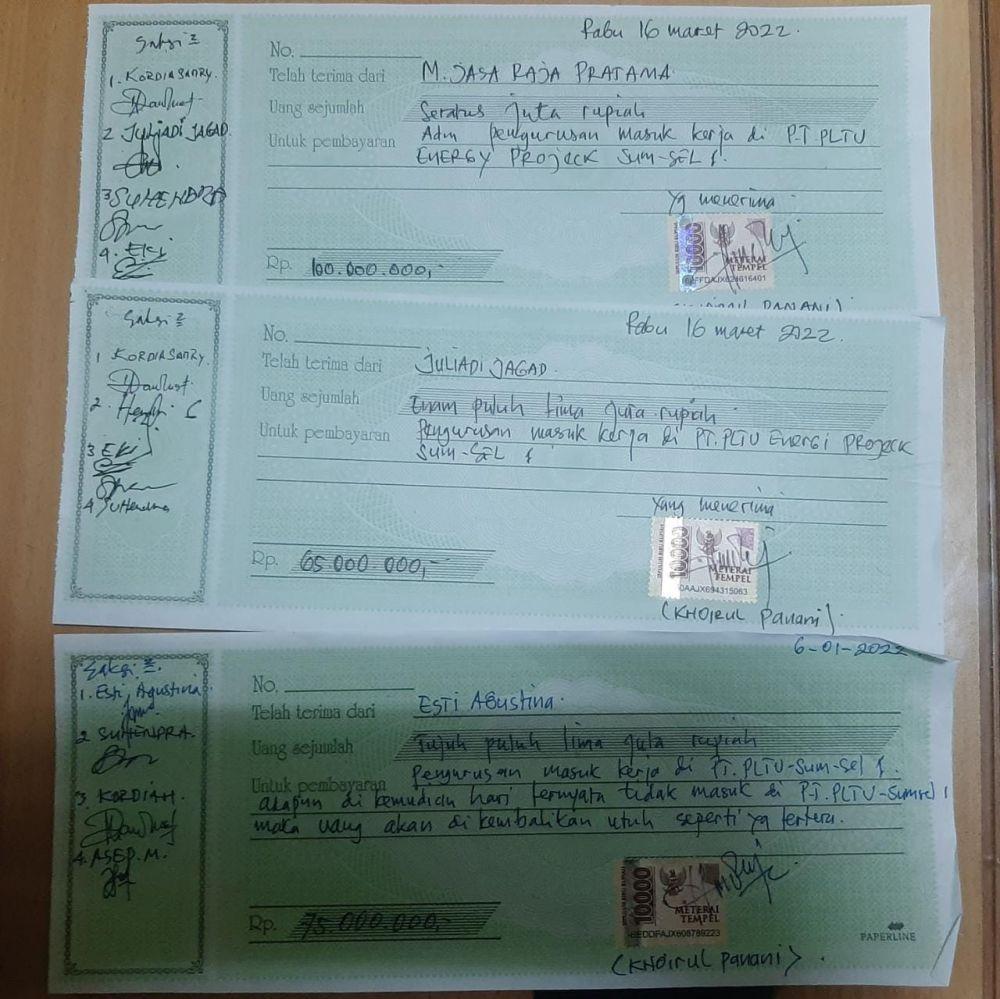 Saksi 2
1. KORDIASANRY
2 Juliadi JAGAD
3 SUHENDRA
4. EKi
Rabu 16 maret 2022.
No.
Telah terima dari M. JASA RAJA PRATAMA
Uang sejumlah Seratus juta rupiah
Untuk pembayaran Adm pengurusan masuk kerja di P.T. PLTU
ENERGY PROJECK SUM-SEL 1.
Yg menerima
10000
METERAI
TEMPEL
Rp. 100.000.000,-
PANANI)
Saksi 2
1 KORDIASANRY.
2.
3 EKi
4 SuHendra
Rabu 16 maret 2022.
No.
Telah terima dari JULIADI JAGAD.
Uang sejumlah Enam puluh lima juta rupiah
Untuk pembayaran Pengurusan masuk kerja di PT. PLTU ENERGI PROJECK
SUM-SEL 1
Yang menerima
10000
METERAI
TEMPEL
AAJX694315063
Rp. 65.000.000,-
(KHOIRUL Panani).
Saksi 2.
1. Esti Agustina.
2 SUHENDRA.
3. KORDIAH.
4. ASEP. M.
6-01-2022
No.
Telah terima dari ESTI AGustina.
Uang sejumlah Tujuh puluh lima juta rupiah
Untuk pembayaran Pengurusan masuk kerja di PT. PLTU-Sum-Sel 1.
adapun di kemudian hari ternyata tidak masuk di P.T. PLTU-Sumsel 1
maka uang akan di kembalikan utuh seperti yg tertera.
10000
METERAI
TEMPEL
Rp. 75.000.000,-
PAPERLINE
(KHOIRUL Panani).